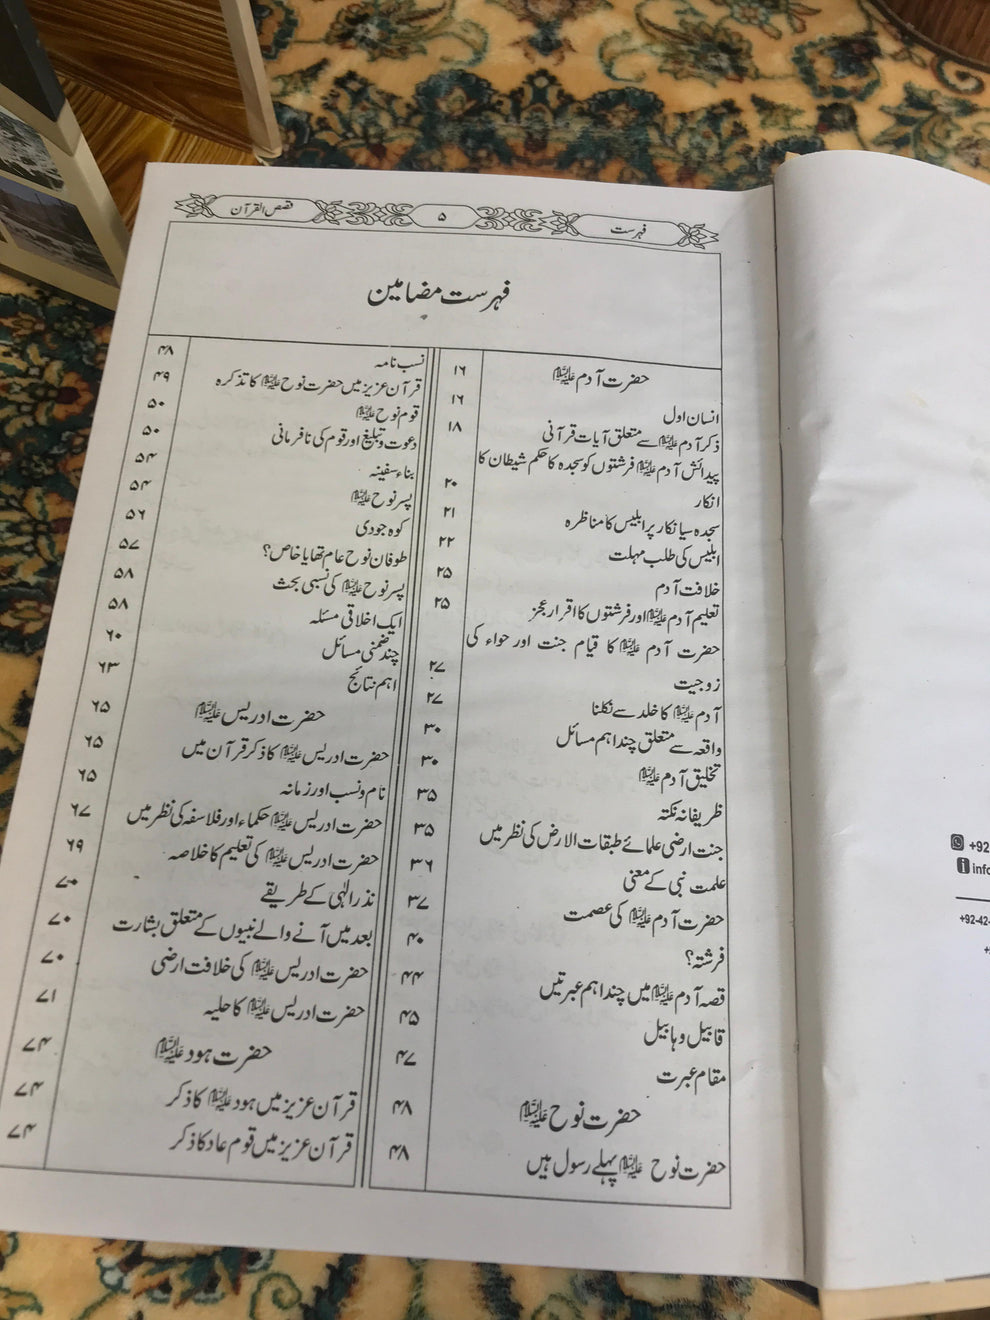 فہرست ۵ قصص القرآن
فہرست مضامین
حضرت آدم علیہ السلام ۱۶
انسان اول ۱۶
ذکر آدم علیہ السلام سے متعلق آیات قرآنی ۱۸
پیدائش آدم علیہ السلام فرشتوں کو سجدہ کا حکم شیطان کا
انکار ۲۰
سجدہ سیا نکار پر ابلیس کا مناظرہ ۲۱
ابلیس کی طلب مہلت ۲۲
خلافت آدم ۲۵
تعلیم آدم علیہ السلام اور فرشتوں کا اقرار عجز ۲۵
حضرت آدم علیہ السلام کا قیام جنت اور حواء کی
زوجیت ۲۷
آدم علیہ السلام کا خلد سے نکلنا ۲۷
واقعہ سے متعلق چند اہم مسائل ۳۰
تخلیق آدم علیہ السلام ۳۰
ظریفانہ نکتہ ۳۵
جنت ارضی علمائے طبقات الارض کی نظر میں ۳۵
علمت نبی کے معنی ۳۶
حضرت آدم علیہ السلام کی عصمت ۳۷
فرشتہ؟ ۴۰
قصہ آدم علیہ السلام میں چند اہم عبرتیں ۴۴
قابیل و ہابیل ۴۵
مقام عبرت ۴۷
حضرت نوح علیہ السلام ۴۸
حضرت نوح علیہ السلام پہلے رسول ہیں ۴۸
نسب نامہ ۴۸
قرآن عزیز میں حضرت نوح علیہ السلام کا تذکرہ ۴۹
قوم نوح علیہ السلام ۵۰
دعوت و تبلیغ اور قوم کی نافرمانی ۵۰
بناء سفینہ ۵۴
پسر نوح علیہ السلام ۵۴
کوہ جودی ۵۶
طوفان نوح عام تھا یا خاص؟ ۵۷
پسر نوح علیہ السلام کی نسبی بحث ۵۸
ایک اخلاقی مسئلہ ۵۸
چند ضمنی مسائل ۶۰
اہم نتائج ۶۳
حضرت ادریس علیہ السلام ۶۵
حضرت ادریس علیہ السلام کا ذکر قرآن میں ۶۵
نام و نسب اور زمانہ ۶۵
حضرت ادریس علیہ السلام حکماء اور فلاسفہ کی نظر میں ۶۷
حضرت ادریس علیہ السلام کی تعلیم کا خلاصہ ۶۹
نذر الٰہی کے طریقے ۷۰
بعد میں آنے والے نبیوں کے متعلق بشارت ۷۰
حضرت ادریس علیہ السلام کی خلافت ارضی ۷۰
حضرت ادریس علیہ السلام کا حلیہ ۷۱
حضرت ہود علیہ السلام ۷۴
قرآن عزیز میں ہود علیہ السلام کا ذکر ۷۴
قرآن عزیز میں قوم عاد کا ذکر ۷۴
+92
info
+92-42-